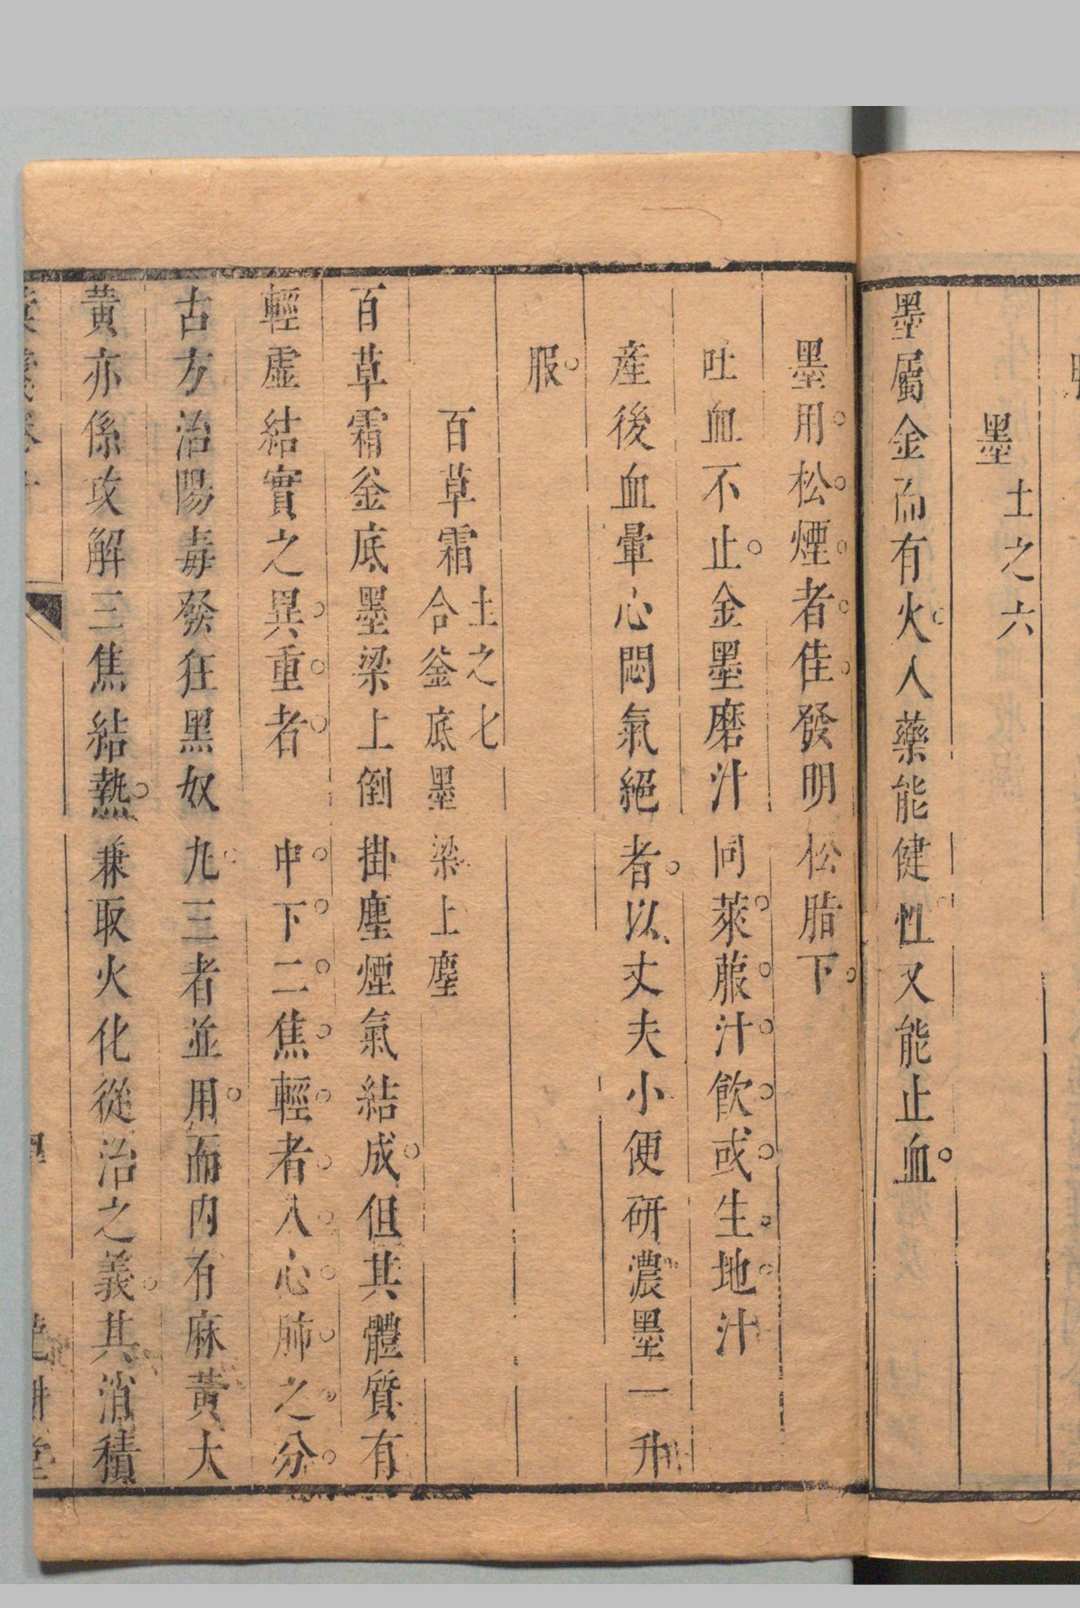 墨
土之六
墨屬金而有火入藥能健性又能止血
墨用松煙者佳發明松脂下
吐血不止金墨磨汁同萊菔汁飲或生地汁
產後血暈心悶氣絕者以丈夫小便研濃墨一升
服
百草霜
土之七
合釜底墨梁上塵
百草霜釜底墨梁上倒掛塵煙氣結成但其體質有
輕虛結實之異重者中下二焦輕者入心肺之分
古方治陽毒發狂黑奴丸三者並用而內有麻黃大
黃亦係攻解三焦結熱兼取火化從治之義其消積